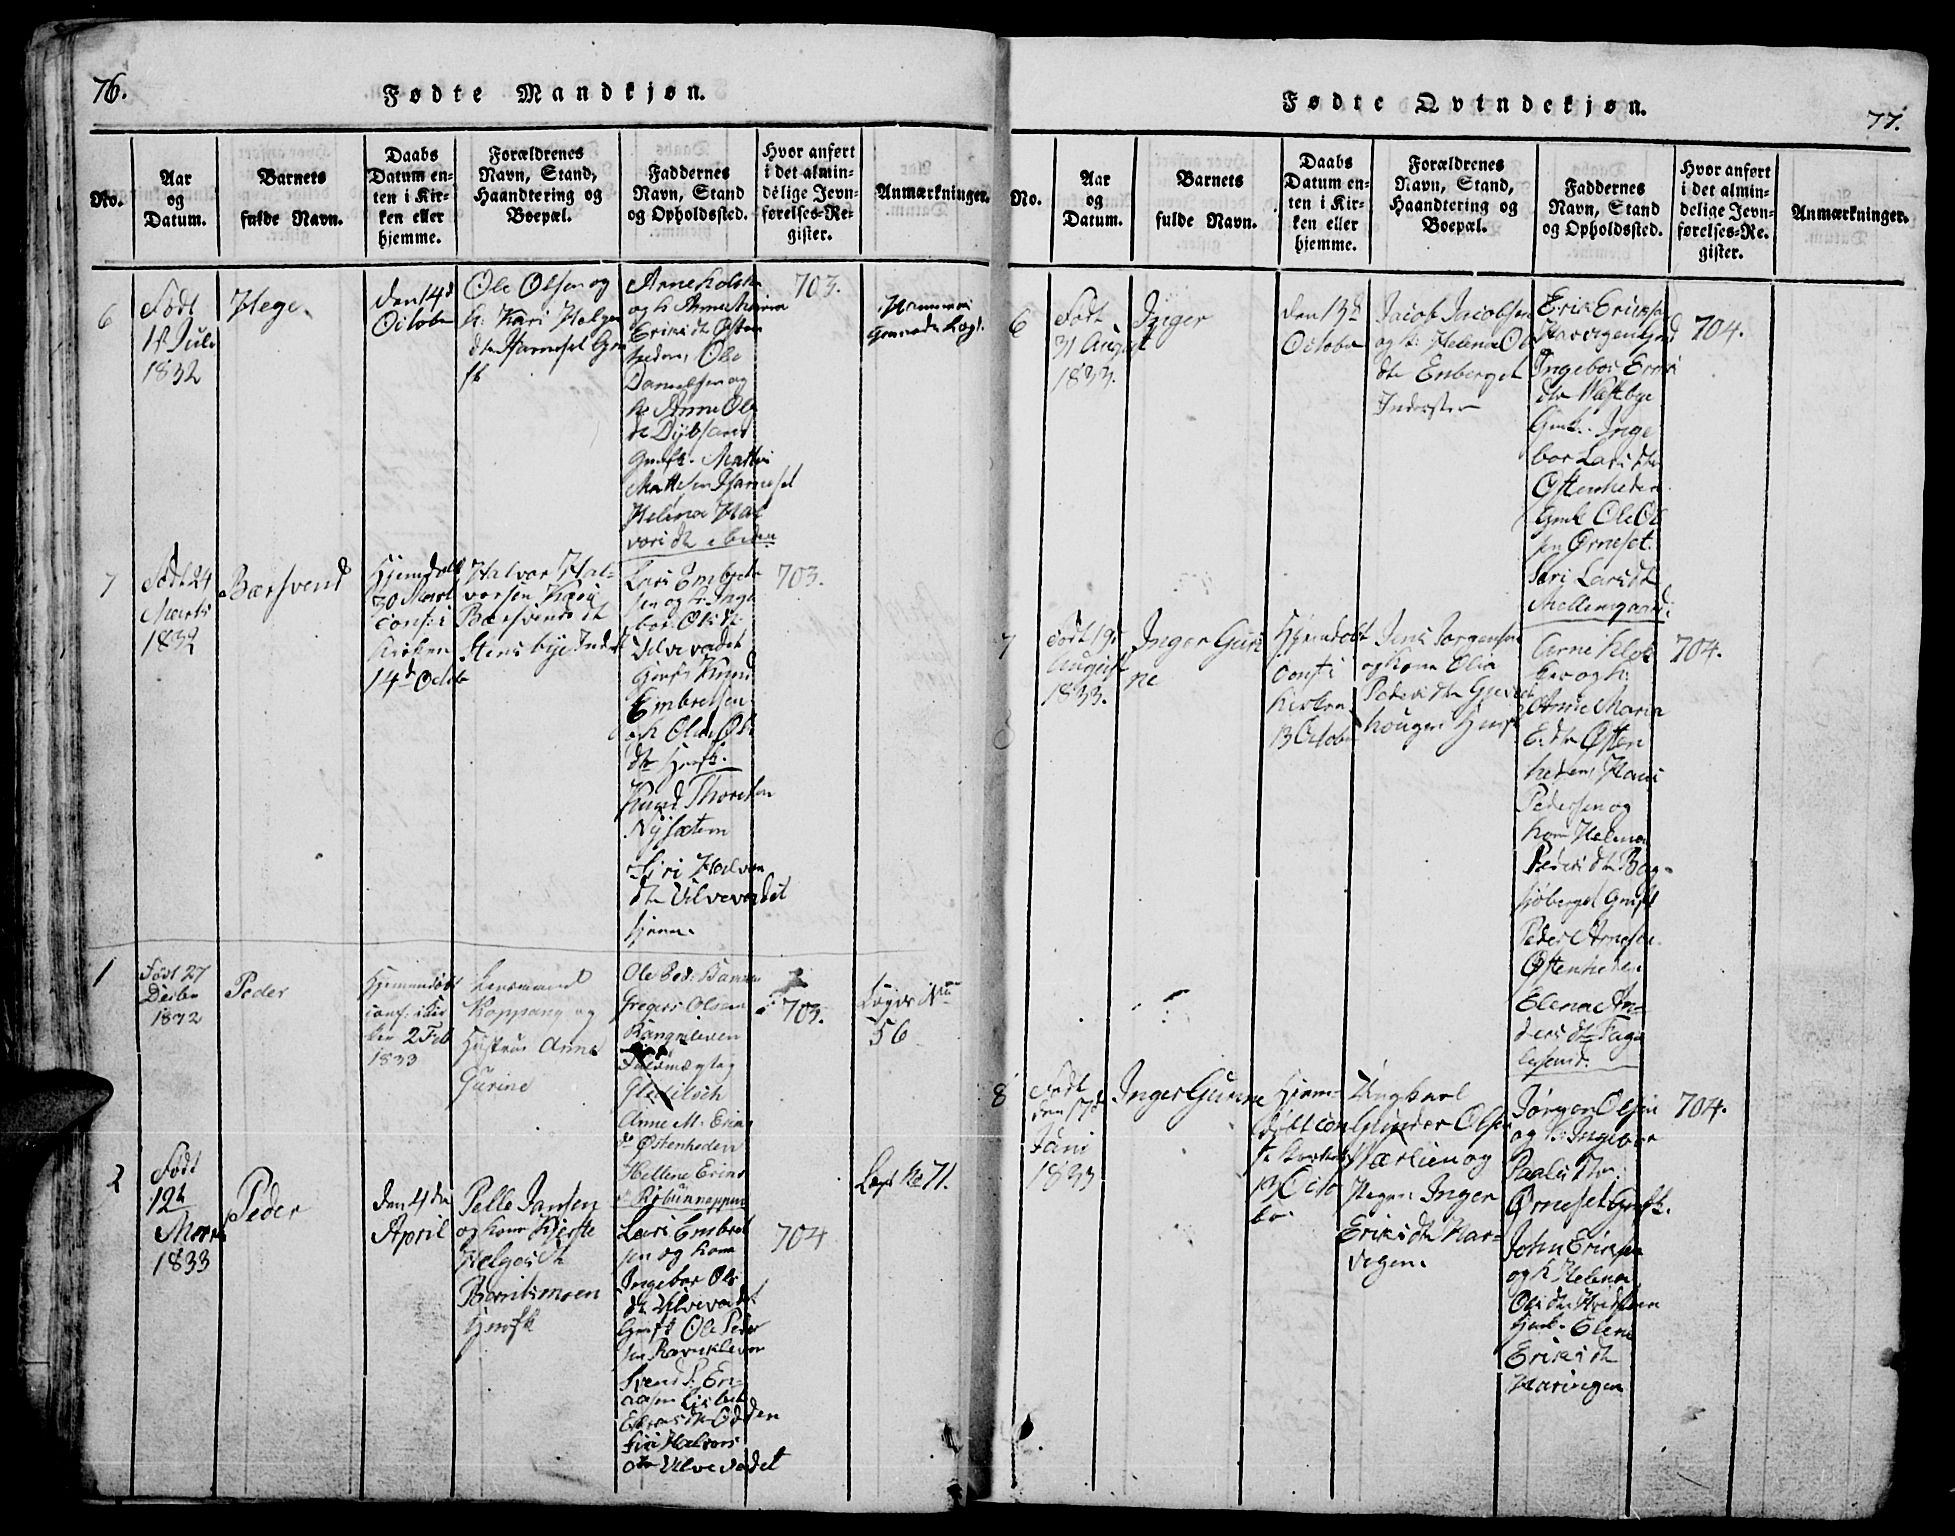 76.
Fødte Mandkjøn.
No.
Aar
og
Datum.
Barnets
fulde Navn.
Daabs
Datum en-
ten i Kir-
ken eller
hjemme.
Forældrenes
Navn, Stand,
Haandtering og
Boepæl.
Faddernes
Navn, Stand
og Opholdssted.
Hvor anført
i det almin-
delige Jevn-
førelses-Re-
gister.
Anmærkninger.
6
Født
Juli
1832
Hege
den 14d
Octobr
Ole Olsen og
k: Kari Helges
dtr
Arne
og k Anne Maria
Eriksdtr Østen
heden, Ole
Danielsen og
k: Anne Ols
dtr
Mattis
Mattisen
Helena Hal
vorsdtr
703.
7
Født 24
Marts
1832
Bersvend
Hjemdøbt
30 Mart
conf i
Kirken
14d Octob
Halvor Hal-
vorsen Kari
Bersvendsdt
Lars Embret
sen og k: Inge
bor Olsdt
Ulvevadet
Knud
Embretsen
og k Olea Ols
dtr
Knud Thoresen
Nysætern
Siri Halvors
dtr Ulvevadet
703.
1
Født 27
Decbr
1832
Peder
Hjemmedøbt
conf: i Kir
ken 2 Feb
1833
Lensmand
Koppang og
Hustrue Anne
Gurine
Ole Ped:
Gregers Olsen
Fuldmægtig
Anne M. Eriks
dr Østenheden
Hellene Eriks
703.
Lagts No
56
2
Født
12te
Marts
1833
Peder
den 4de
April
Pelle Jansen
og kone Kjerste
Helgesdt
Berritsmoen
Lars Embret
sen og kone
Ingebor Ols
dtr Ulvevadet
Ole Peder
sen
Svend P.
Lisbet
Siri Halvors
dtr Ulvevadet
704
Lagt No 71.
Fødte Qvindekjøn.
77.
No.
Aar
og
Datum.
Barnets
fulde Navn.
Daabs
Datum en-
ten i Kir-
ken eller
hjemme.
Forældrenes
Navn, Stand,
Haandtering og
Boepæl.
Faddernes
Navn, Stand
og Opholdssted.
Hvor anført
i det almin-
delige Jevn-
førelses-Re-
gister.
Anmærkninger.
6
Født
31 August
1833.
Inger
den 13de
Octobr
Jacob Jacobsen
og k: Helena Ols
dtr Enberget
Inderster
Erik Eriksen
Ingebor Eriks
dtr Væstbye
Inge
bor Larsdtr
Østenheden
Ole Ol
sen Ørneset
Siri Larsdtr
Mellemgaard
704.
7
Født 19
August
1833.
Inger Guri
ne
Hjemdøbt
conf i
Kirken
13 Octobr
Jens Jørgensen
og kone Olea
Pedersdtr
Arne Klok
ker og k:
Anne Maria
E:dtr Østen
heden, Hans
Pedersen og
kone Helena
Pedersdtr
Peder Arnesen
Østenheden
Elena An-
dersdtr
704.
8
Født
den 17d
Juni
1833
Inger Gurine
Hjem-
døbt con
13 Octo
br
Ungkarl
Gunder Olsen
og
Pigen Inger
Eriksdtr Har-
vegen
Jørgen Olsen
og k: Ingebor
Paalsdtr
Ørneset
John Eriksen
og k Helena
Olsdtr
Elene
Eriksdtr
704.